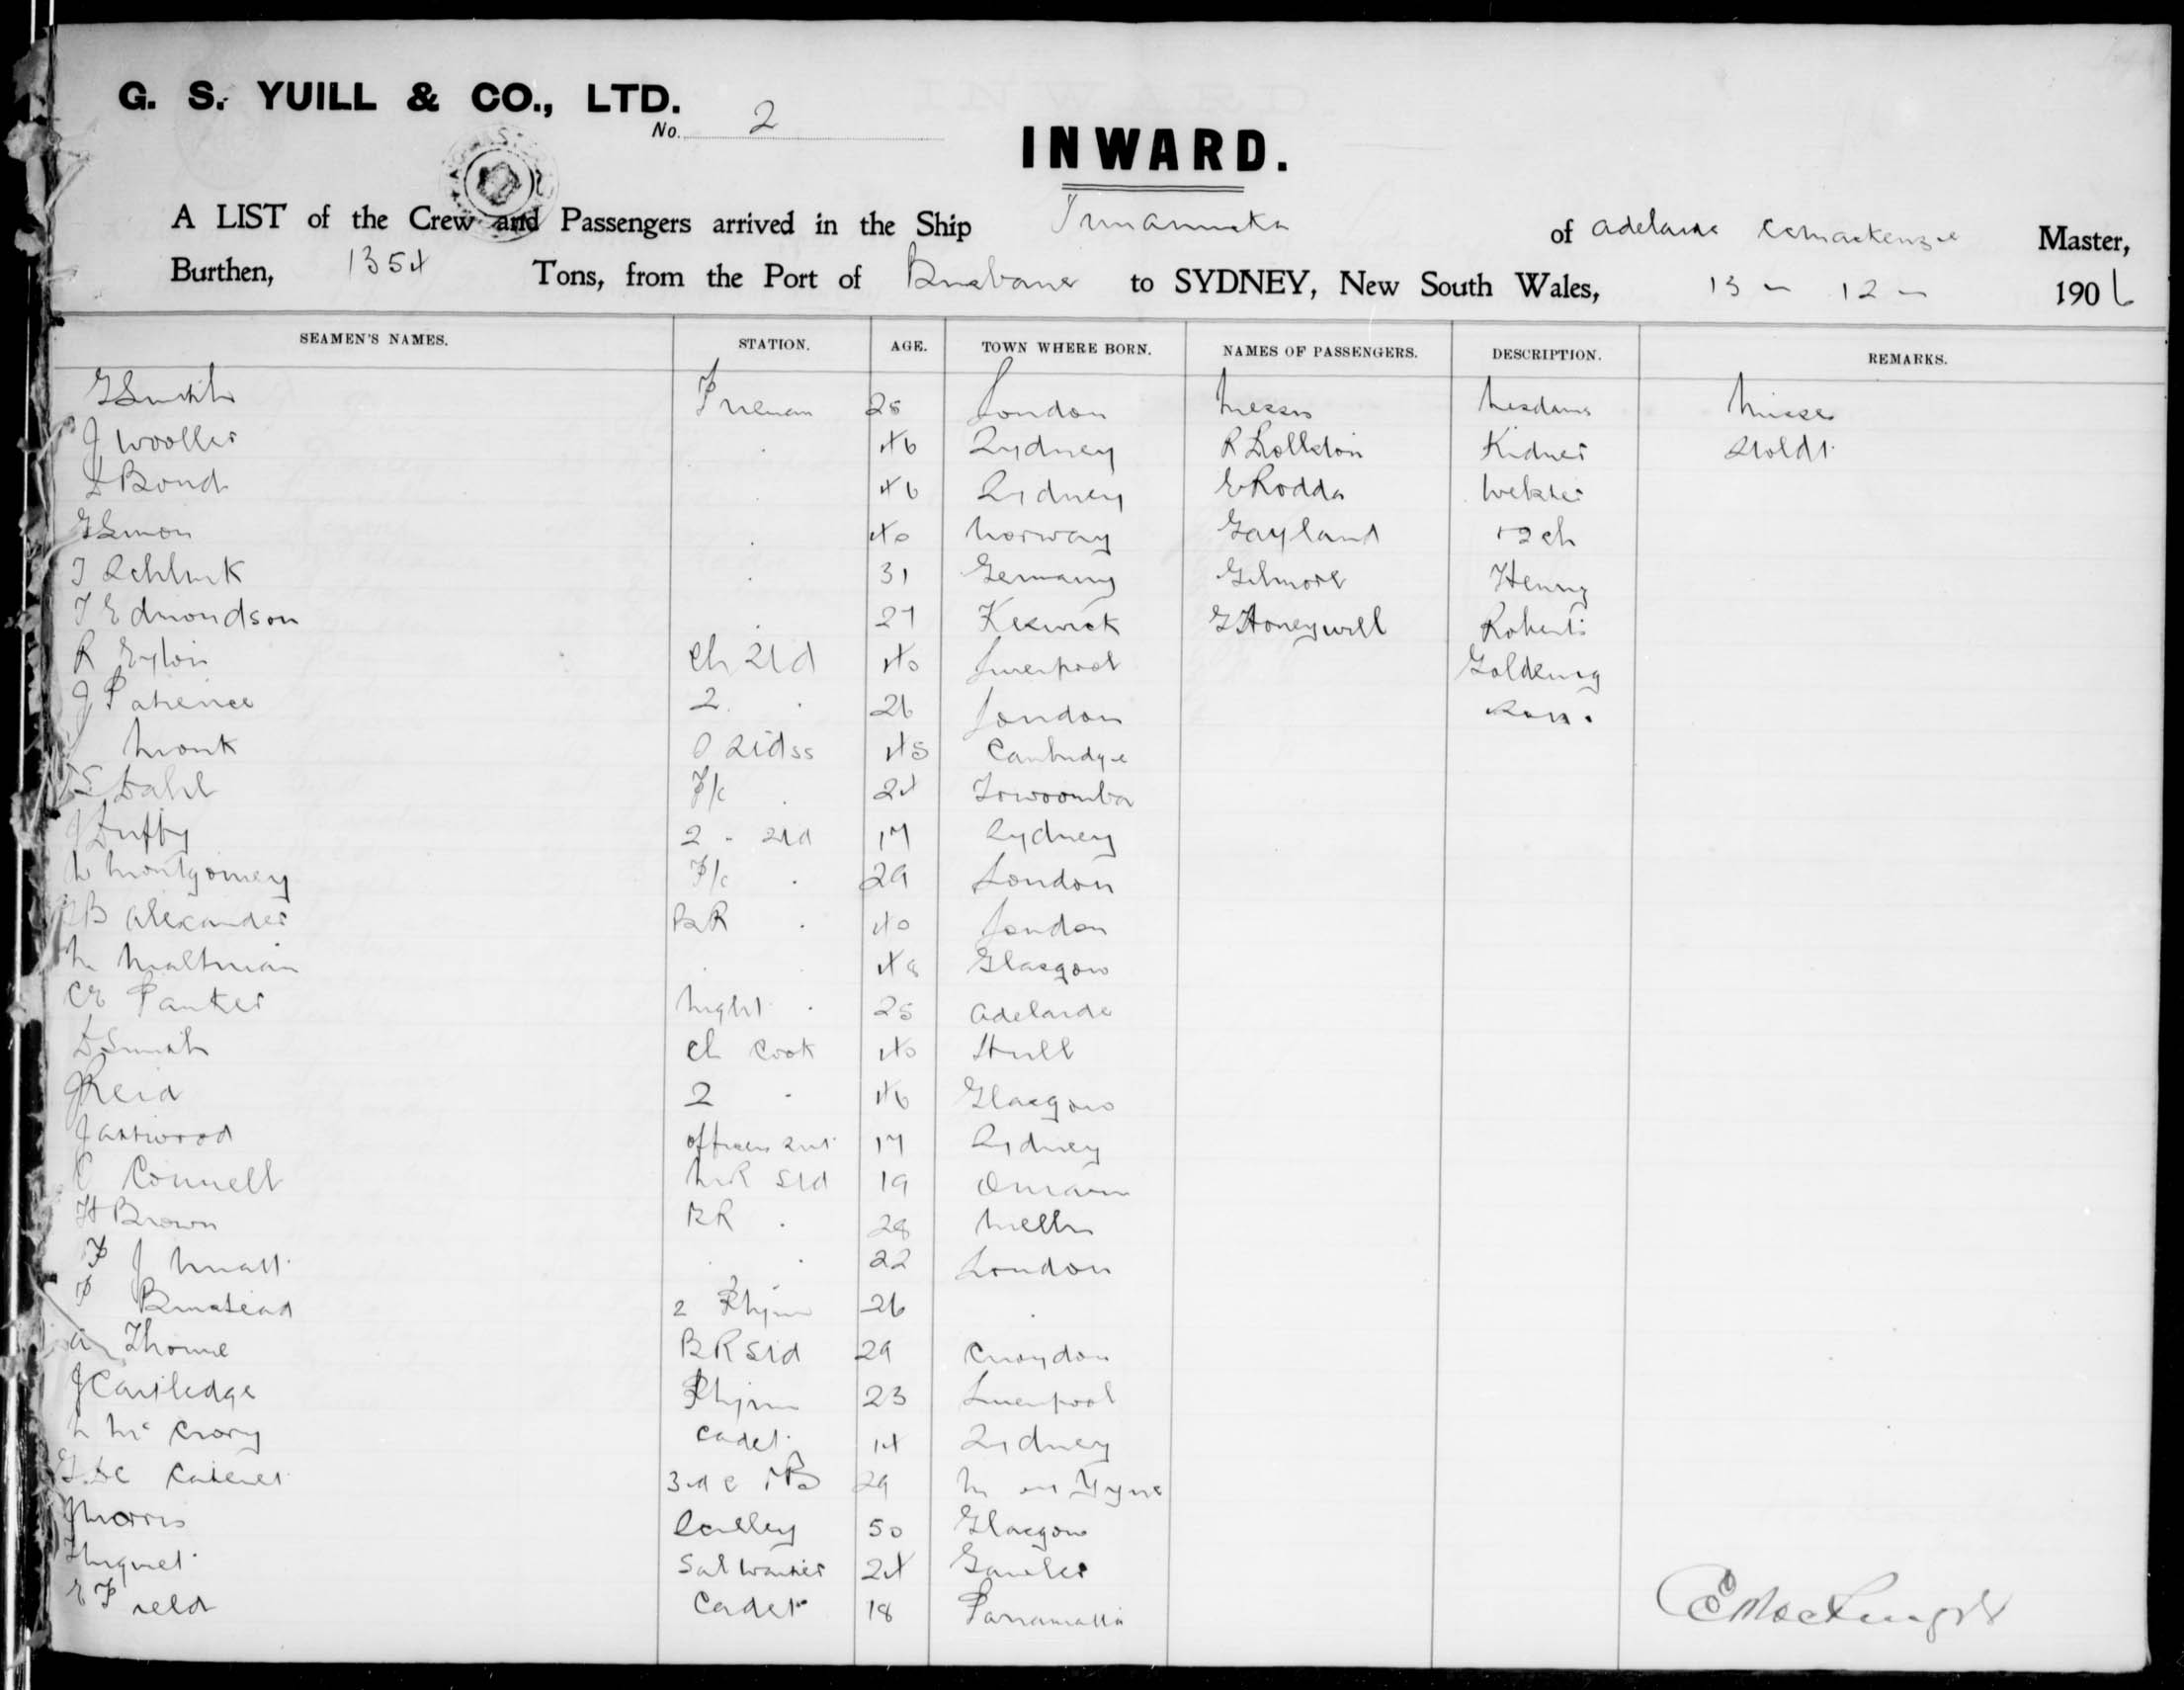 G. S. YUILL & CO., LTD.
No. 2
INWARD.
A LIST of the Crew and Passengers arrived in the Ship Innamincka of Adelaide C Mackenzie Master,
Burthen, 1354 Tons, from the Port of Brisbane to SYDNEY, New South Wales, 13 - 12 - 1906
SEAMEN'S NAMES. STATION. AGE. TOWN WHERE BORN. NAMES OF PASSENGERS. DESCRIPTION. REMARKS.
G Smith Fireman 25 London Messrs Mesdames Misses
J Wooller . 46 Sydney R Rollston Kidner Stoldt
Bond . 46 Sydney E Rodda Webster
G Simon . 40 Norway Gayland
J Schluk . 31 Germany Gilmore Henry
T Edmondson . 27 Keswick G Honeywill Roberts
R Ch Std 40 Liverpool Goldring
J Patience 2 . 26 London
Monk 45 Cambridge
Dahl F/c . 24 Towoomba
J Duffy 2 - Std 17 Sydney
Montgomery F/c . 29 London
B Alexander BR . 40 London
M Maltman . . 48 Glasgow
CE Panter Night . 25 Adelaide
D Smith Ch Cook 40 Hull
J Reid 2 . 46 Glasgow
J Astwood Officers Std 17 Sydney
C Connell MR Std 19
H Brown BR . 28 Melbn
F J Muall . . 22 London
F Bumstead 2 Phjm 26 .
A Thorne BR Std 29 Croydon
J Cartledge Phjm 23 Liverpool
Mc Crory Cadet 14 Sydney
G De 29 N on Tyne
J Morris Scullery 50 Glasgow
Huguet Sal Waiter 24 Gawler
E Field Cadet 18 Parramatta
C Mackenzie